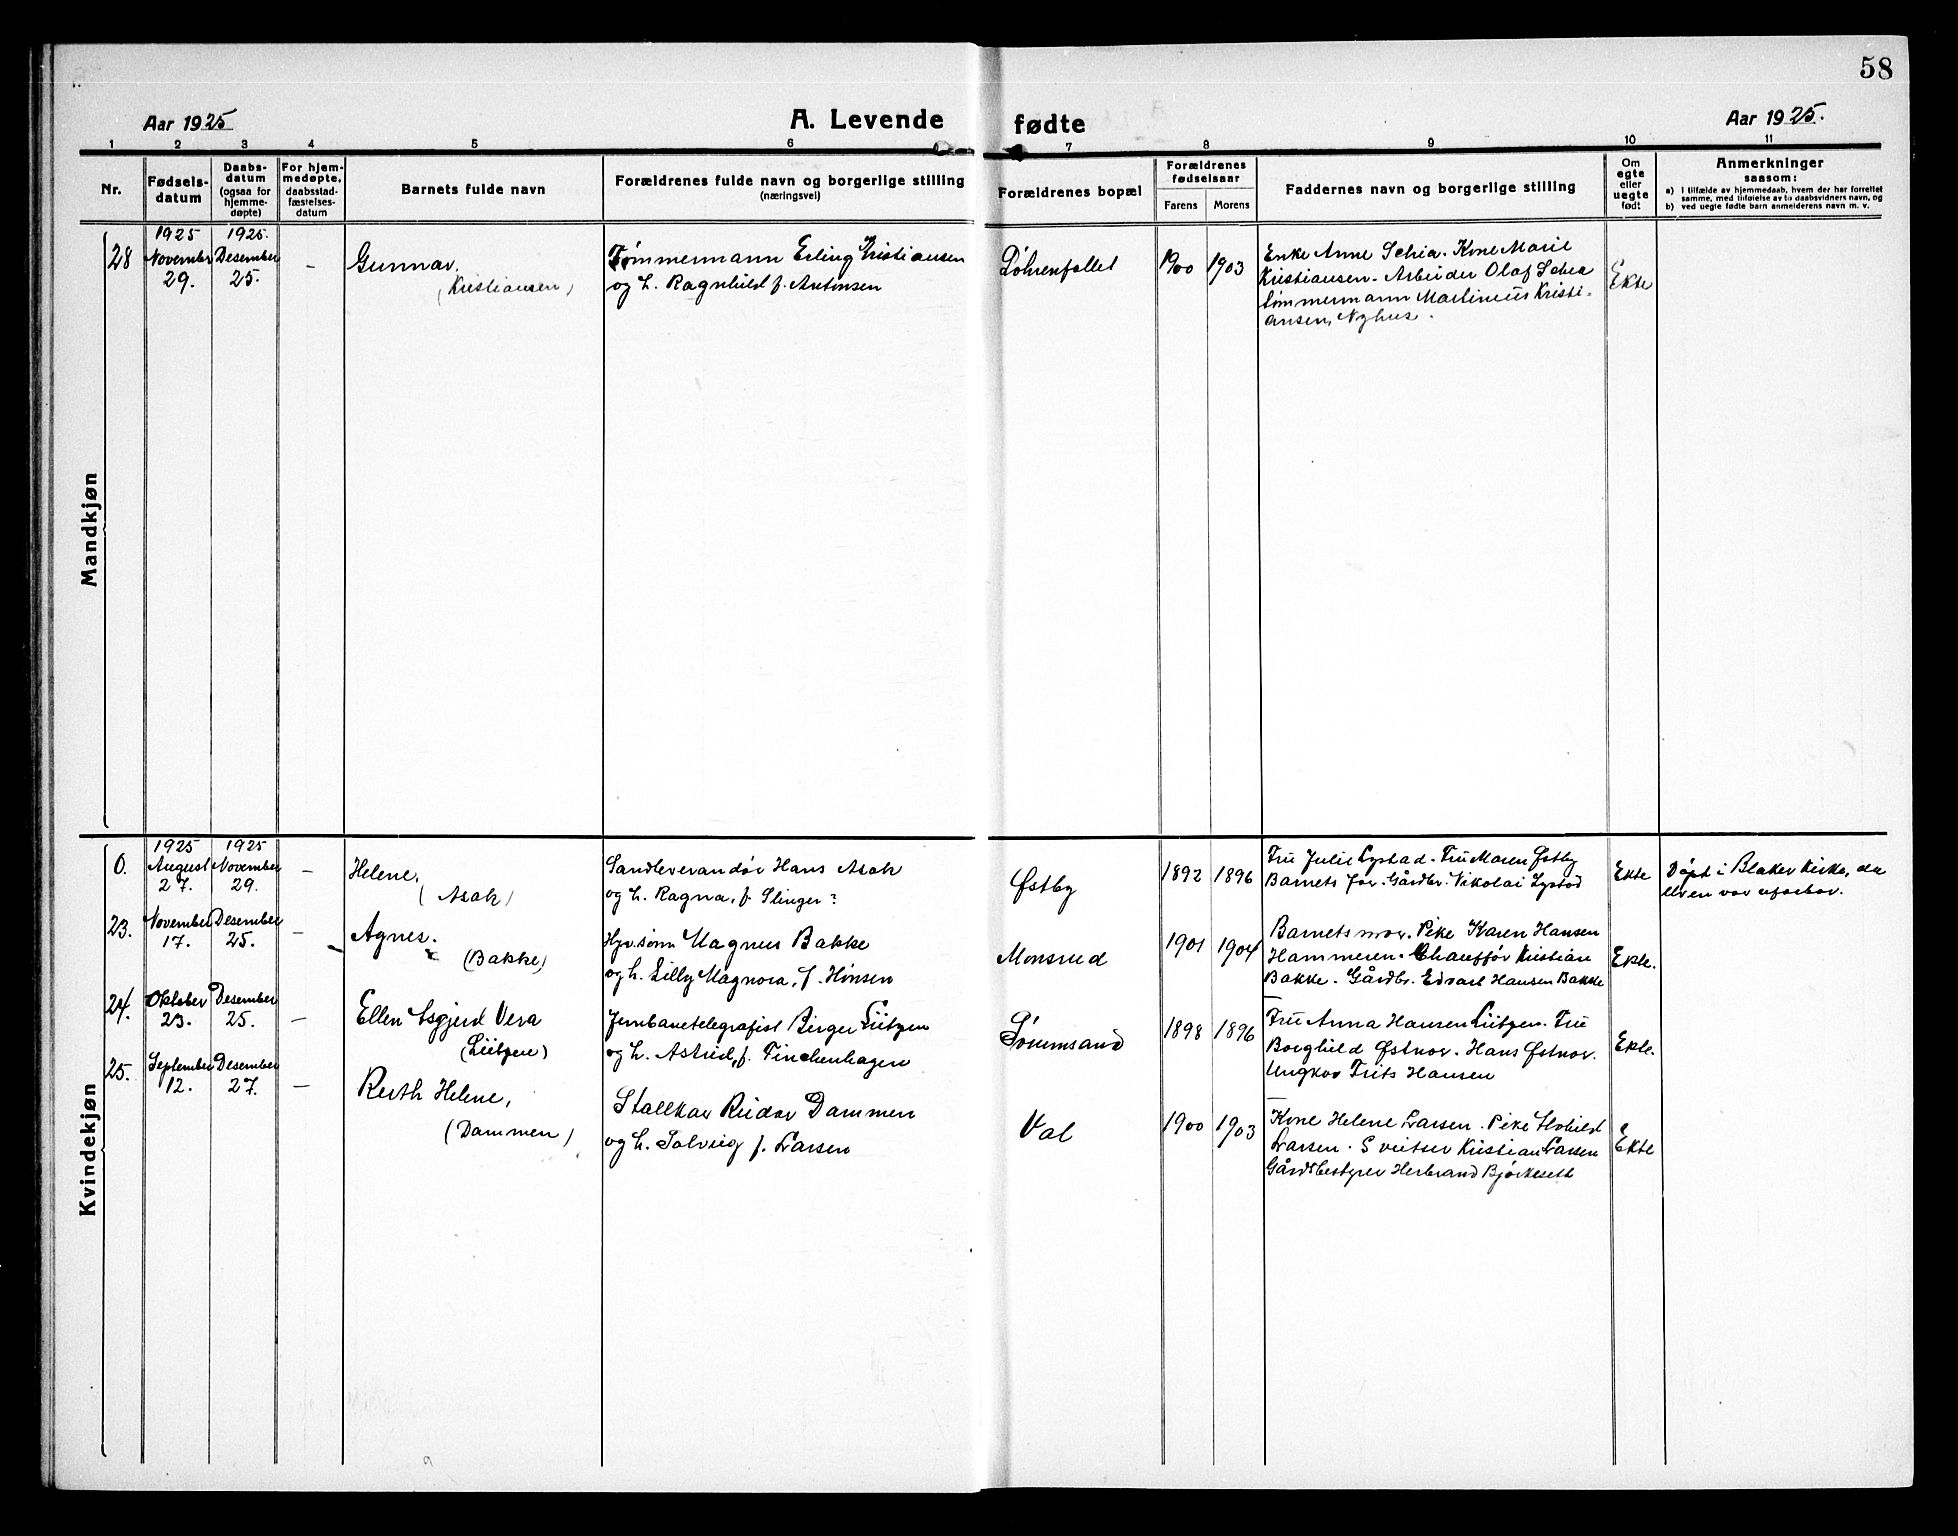 58
Aar 1925
A. Levende
fødte
Aar 1925.
1 2 3 4 5 6 7 8 9 10 11
Nr.
Fødsels-
datum
Daabs-
datum
(ogsaa for
hjemme-
døpte)
For hjem-
medøpte,
daabsstad-
fæstelses-
datum
Barnets fulde navn
Forældrenes fulde navn og borgerlige stilling
(næringsvei)
Forældrenes bopæl
Forældrenes
fødselsaar
Farens Morens
Faddernes navn og borgerlige stilling
Om
egte
eller
uegte
født
Anmerkninger
saasom:
a) I tilfælde av hjemmedaab, hvem der har forrettet
samme, med tilføielse av to daabsvidners navn, og
b) ved uegte fødte barn anmelderens navn m. v.
Mandkjøn
28
1925
November
29.
1925.
Desember
25.
–
Gunnar.
(Kristiansen)
Tømmermann Erling Kristiansen
og h. Ragnhild f. Antonsen
1900 1903
Enke Anne Schia. Kone Marie
Kristiansen. Arbeider Olaf Schea
tømmermann Martinius Kristi-
ansen, Nyhus.
Ekte
Kvindekjøn
0.
1925
August
27.
1925
November
29.
–
Helene.
(Asak)
Sandleverandør Hans Asak
og h. Ragna, f. Slinger?
Østby
1892 1896
Fru Julie Lystad. Fru Maren Østby
Barnets far. Gårdbr. Nikolai Lystad
Ekte
Døpt i Blaker Kirke, da
elven var ufarbar.
23.
November
17.
Desember
25.
–
Agnes.
(Bakke)
Magnus Bakke
og h. Lilly Magnora, f. Hansen
Monsrud
1901 1904
Barnets mor. Pike Karen Hansen
Hammeren. Chauffør Kristian
Bakke. Gårdbr. Edvart Hansen Bakke
Ekte.
24.
Oktober
23.
Desember
25.
–
Ellen Asgjerd Vera
(Lütgen)
Jernbanetelegrafist Birger Lütgen
og h. Astrid, f. Finckenhagen
Sørumsand
1898 1896
Fru Anna Hansen Lütgen. Fru
Borghild Østnor. Hans Østnor.
Ungkar Frits Hansen
Ekte.
25.
September
12.
Desember
27.
–
Ruth Helene,
(Dammen)
Stallkar Reidar Dammen
og h. Solveig f. Larsen
Val
1900 1903
Kone Helene Larsen. Pike
Larsen. Sveitser Kristian Larsen
Gårdsbestyrer Herbrand Bjørkeseth
Ekte